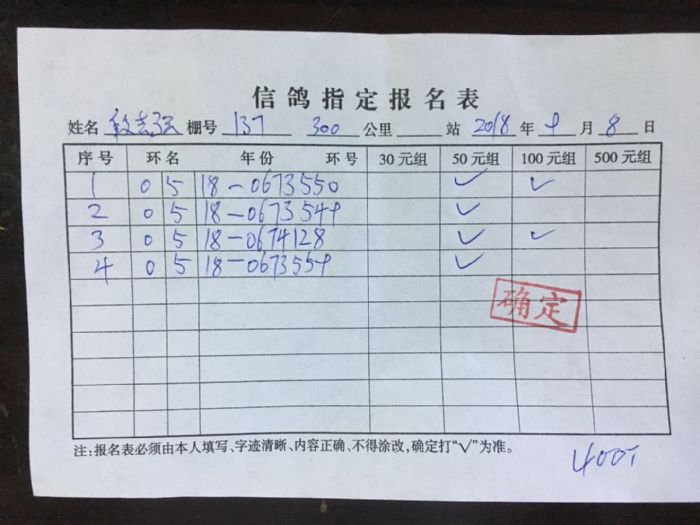 信鸽指定报名表
姓名 段志强 棚号 137 300 公里 站 2018 年 9 月 8 日
序号 环名 年份 环号 30元组 50元组 100元组 500元组
1 0 5 18-0673550 ✓ ✓
2 0 5 18-0673549 ✓
3 0 5 18-0674128 ✓ ✓
4 0 5 18-0673559 ✓
确定
注:报名表必须由本人填写、字迹清晰、内容正确、不得涂改,确定打“√”为准。